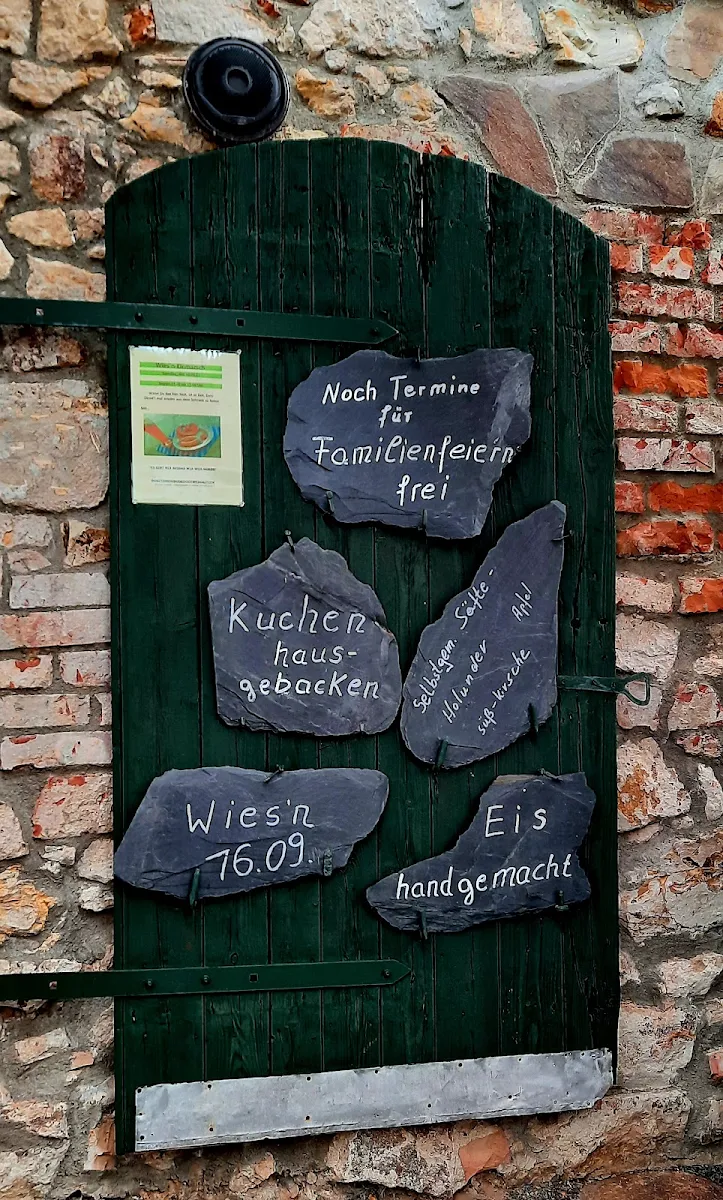 Noch Termine
für
Familienfeiern
frei
Kuchen
haus-
gebacken
Selbstgem. Säfte-
Holunder Apfel
süß-kirsche
Wies'n
16.09.
Eis
handgemacht